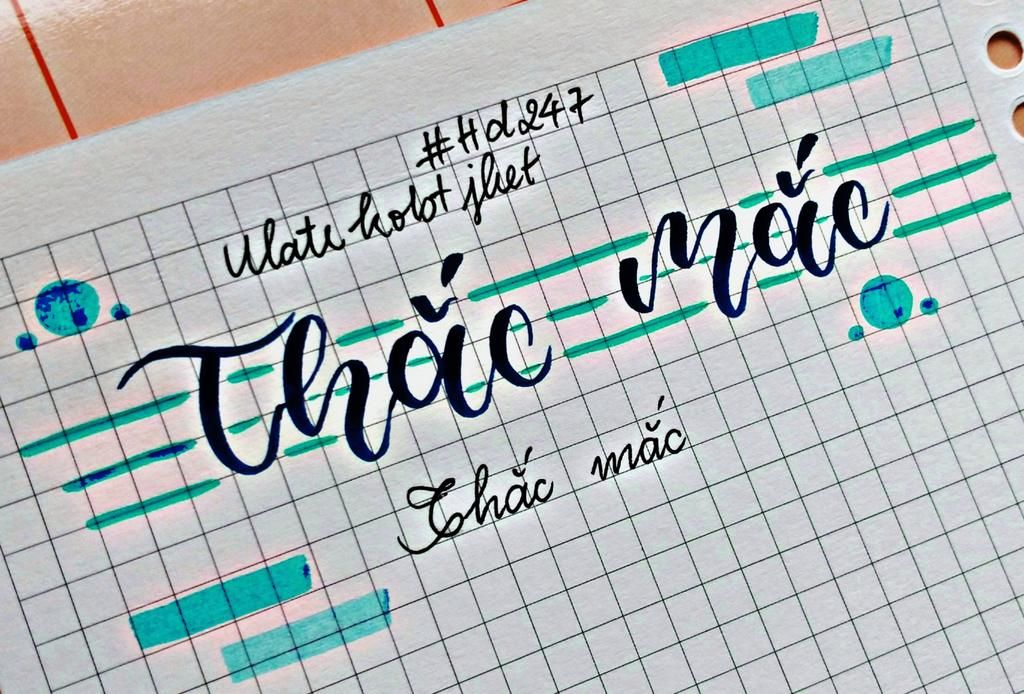 #Hd247
Ulate kolot jket
Thắc mắc
Thắc mắc